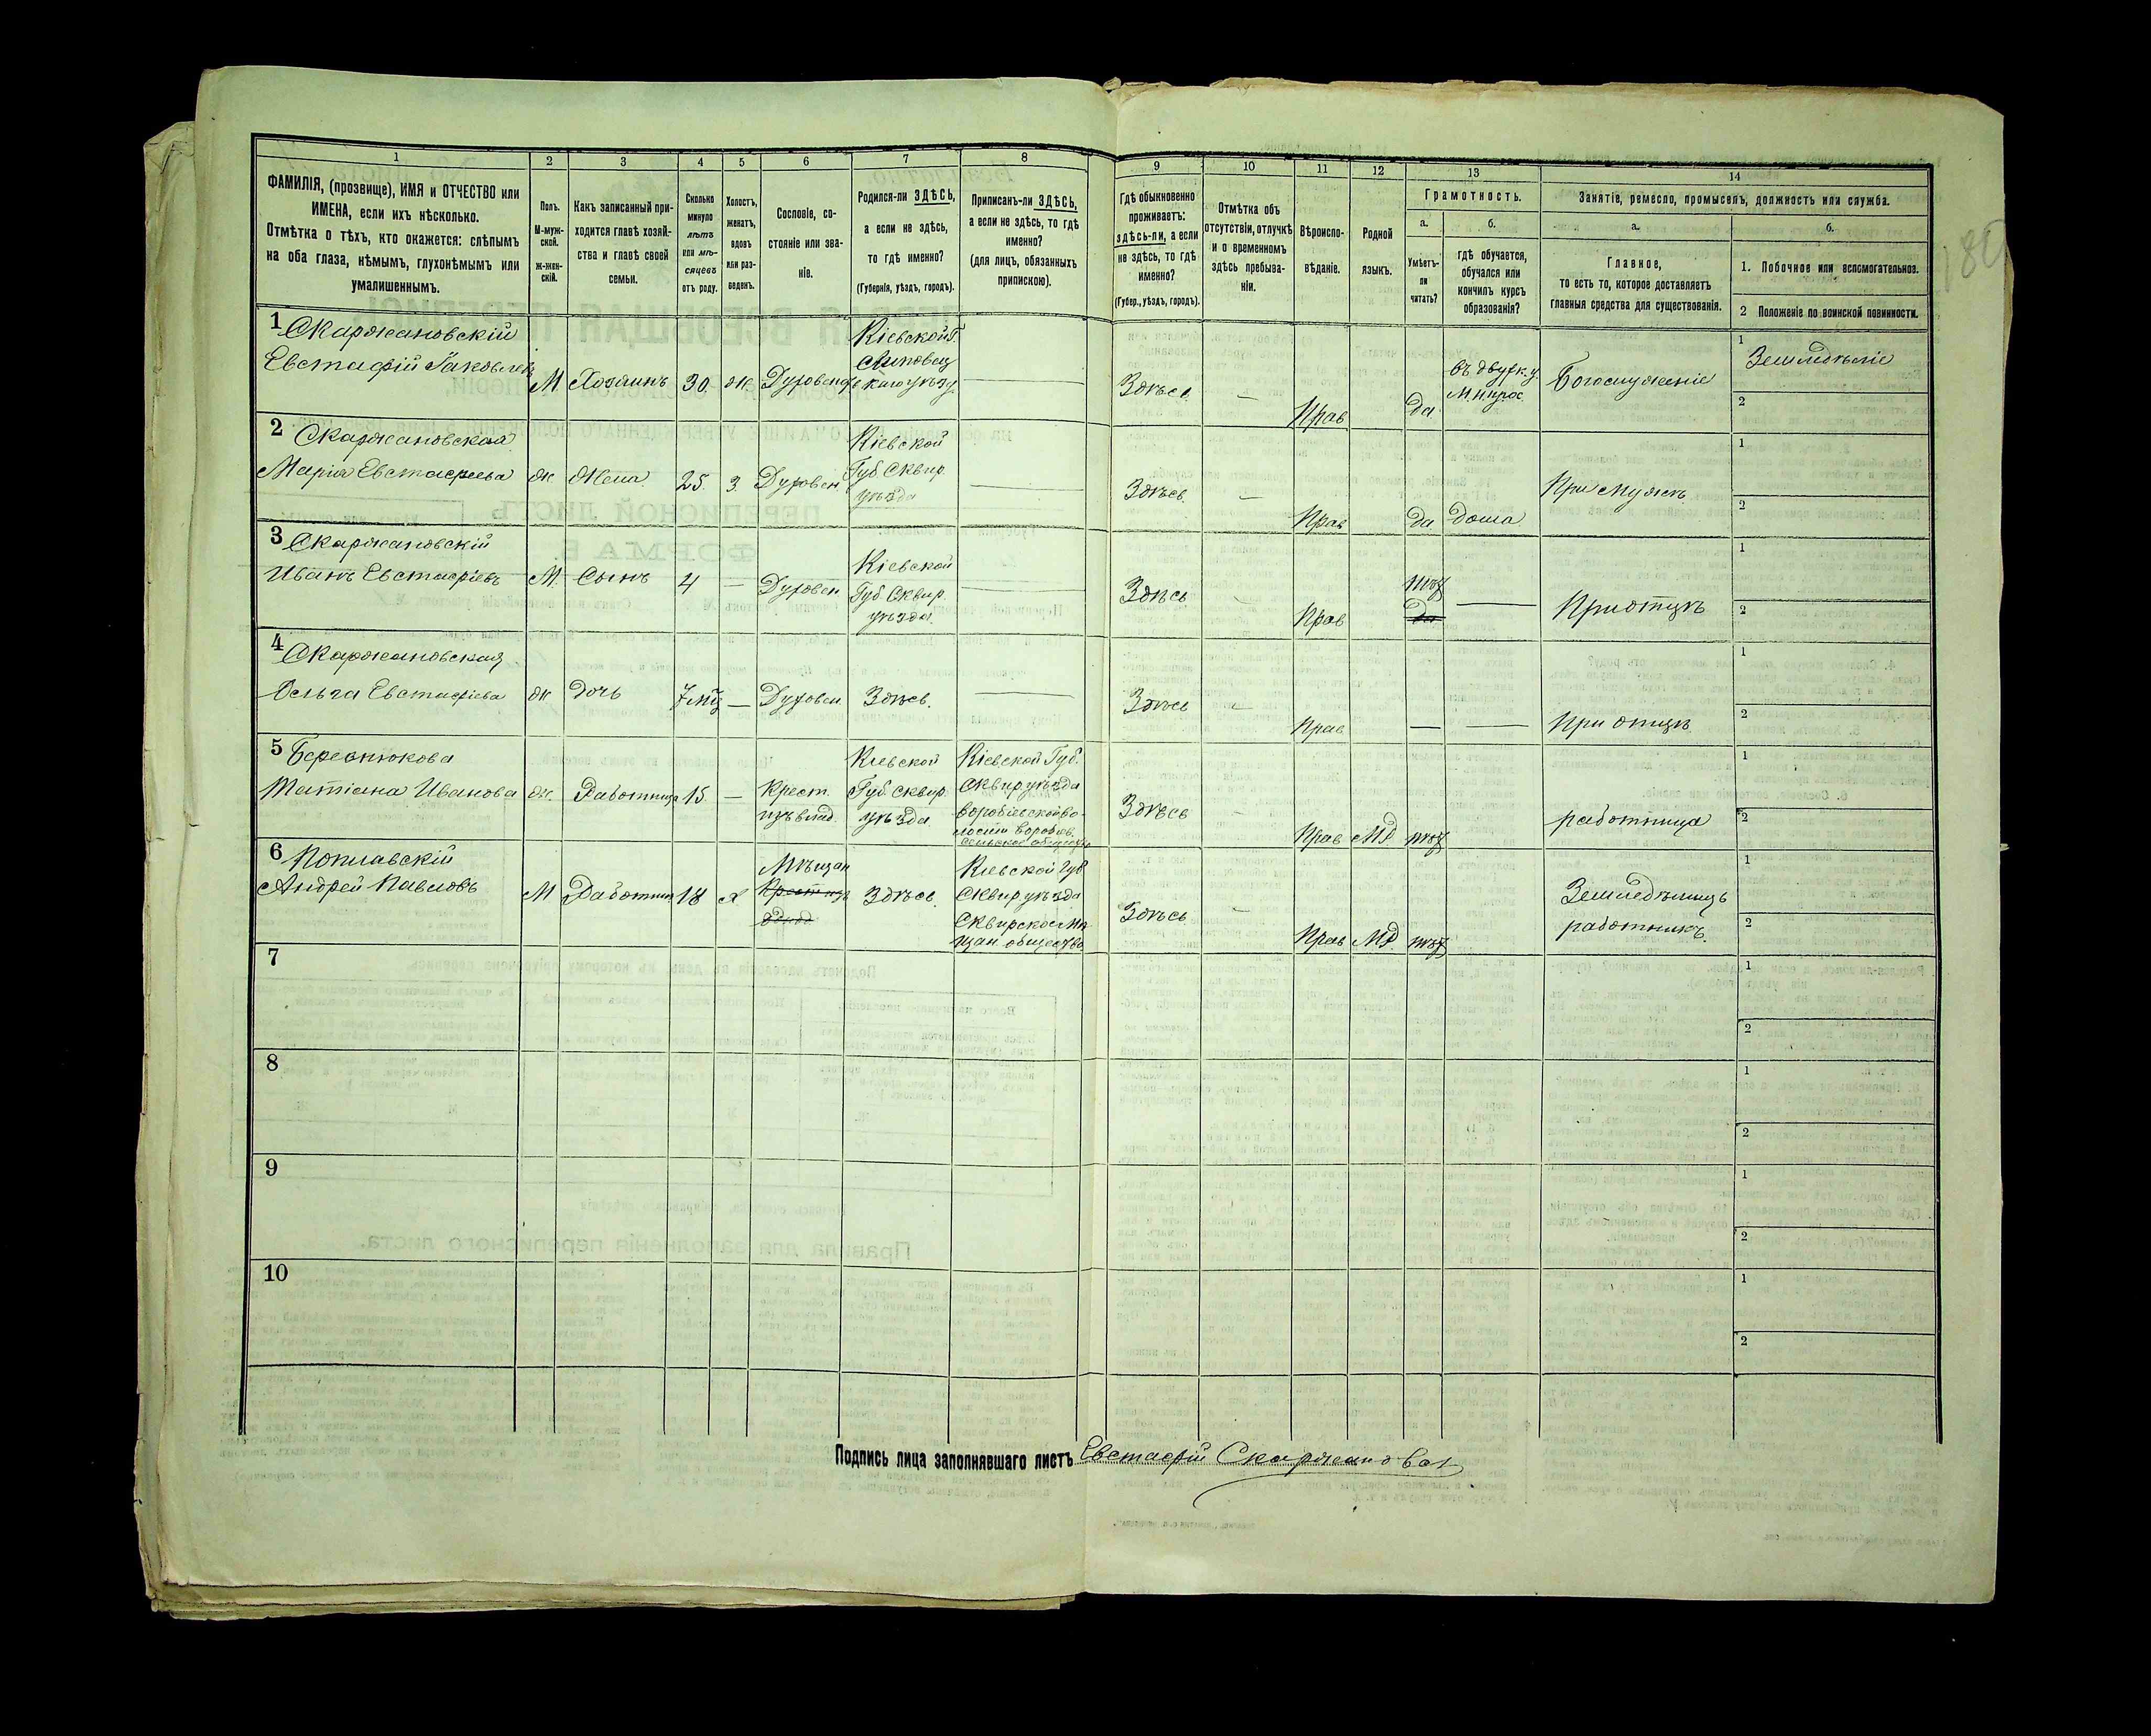 1 2 3 4 5 6 7 8 9 10 11 12 13 14
ФАМИЛІЯ, (прозвище), ИМЯ и ОТЧЕСТВО или
ИМЕНА, если ихъ нѣсколько.
Отмѣтка о тѣхъ, кто окажется: слѣпымъ
на оба глаза, нѣмымъ, глухонѣмымъ или
умалишеннымъ.
Полъ.
М-муж-
ской.
Ж-жен-
скій.
Какъ записанный при-
ходится главѣ хозяй-
ства и главѣ своей
семьи.
Сколько
минуло
лѣтъ
или мѣ-
сяцевъ
отъ роду.
Холостъ,
женатъ,
вдовъ
или раз-
веденъ.
Сословіе, со-
стояніе или зва-
ніе.
Родился-ли ЗДѢСЬ,
а если не здѣсь,
то гдѣ именно?
(Губернія, уѣздъ, городъ).
Приписанъ-ли ЗДѢСЬ,
а если не здѣсь, то гдѣ
именно?
(для лицъ, обязанныхъ
припискою).
Гдѣ обыкновенно
проживаетъ:
здѣсь-ли, а если
не здѣсь, то гдѣ
именно?
(Губер., уѣздъ, городъ).
Отмѣтка объ
отсутствіи, отлучкѣ
и о временномъ
здѣсь пребыва-
ніи.
Вѣроиспо-
вѣданіе.
Родной
языкъ.
Грамотность.
а.
Умѣетъ-
ли
читать?
б.
гдѣ обучается,
обучался или
кончилъ курсъ
образованія?
Занятіе, ремесло, промыселъ, должность или служба.
а.
Главное,
то есть то, которое доставляетъ
главныя средства для существованія.
б.
1. Побочное или вспомогательное.
2 Положеніе по воинской повинности.
1 Скаржановскій
Евстафій Яковлев
М Хозяинъ 30 Ж. Духовен
Кіевской Г.
Липовец
каго уѣзду
Здѣсь
—
Прав
да
въ двухк. у.
М. н. прос.
Богослуженіе
1
Земледѣліе
2
2 Скаржановская
Марія Евстафьева
Ж Жена 25. З. Духовен.
Кіевской
Губ Сквир.
уѣзда
Здѣсь.
—
Прав
да дома
При мужѣ
1
2
3 Скаржановскій
Иванъ Евстафіевъ
М. Сынъ 4 — Духовен
Кіевской
Губ Сквир.
уѣзда.
Здѣсь
Прав
нѣт
да
При отцѣ
1
2
4 Скаржановская
Ольга Евстафіева
Ж дочь 7 мц — Духовен. Здѣсь.
Здѣсь
Прав
При отцѣ.
1
2
5 Береснюкова
Татіана Иванова
Ж. Работница 15 —
Крест.
изъ влад.
Кіевской
Губ. Сквир.
уѣзда
Кіевской Губ.
Сквир уѣзда
воробіевской во-
лости воробіев.
сельское общество
Здѣсь
Прав МР нѣт
работница
1
2
6 Поплавскій
Андрей Павловъ
М Работник 18 Х
Мѣщан
Крест изъ
Здѣсь.
Кіевской губ
Сквир уѣзда
Сквирское мѣ-
щан общество.
Здѣсь
Прав МР. нѣт
Земледѣлецъ
работникъ.
1
2
7
1
2
8
1
2
9
1
2
10
1
2
Подпись лица заполнявшаго листъ Евстафій Скаржановск